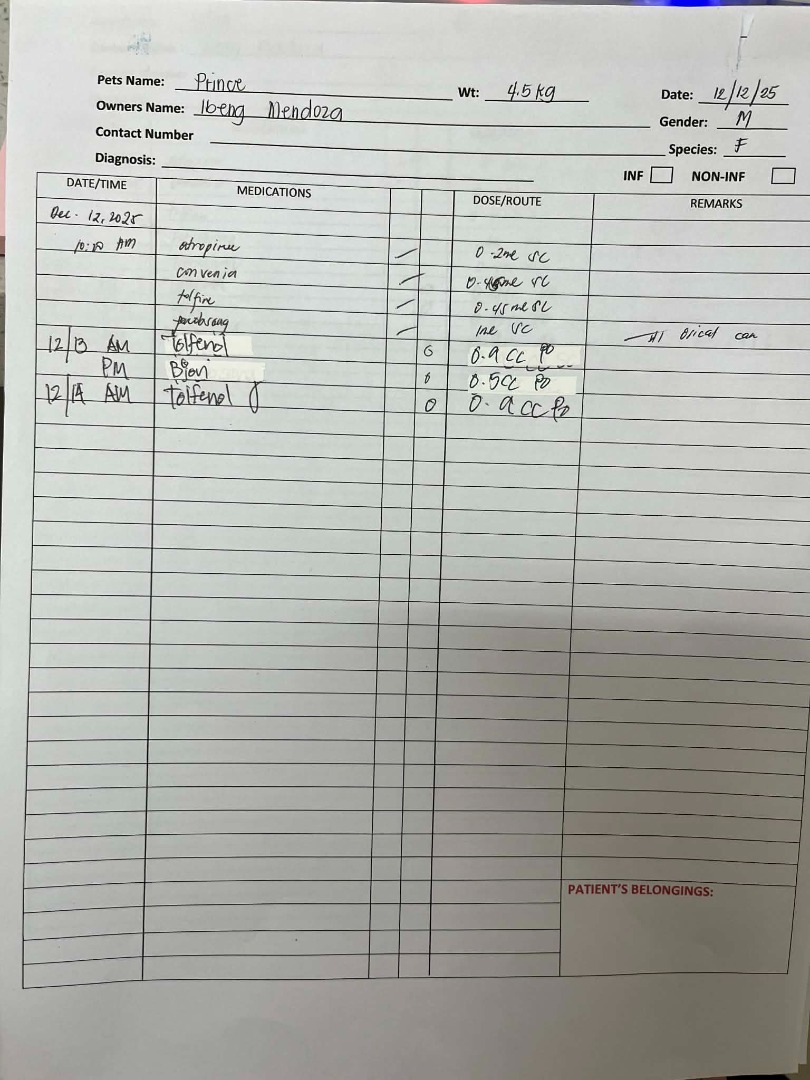 Pets Name: Prince Wt: 4.5 kg Date: 12/12/25
Owners Name: Ibeng Mendoza Gender: M
Contact Number Species: F
Diagnosis: INF NON-INF
DATE/TIME MEDICATIONS DOSE/ROUTE REMARKS
Dec. 12, 2025
AM atropine SC
convenia SC
tolfine 0.45 SC
SC can
12/13 AM Tolfenol 0.9 cc PO
PM 0.5cc PO
12/14 AM Tolfenol 0.9 cc PO
PATIENT'S BELONGINGS: